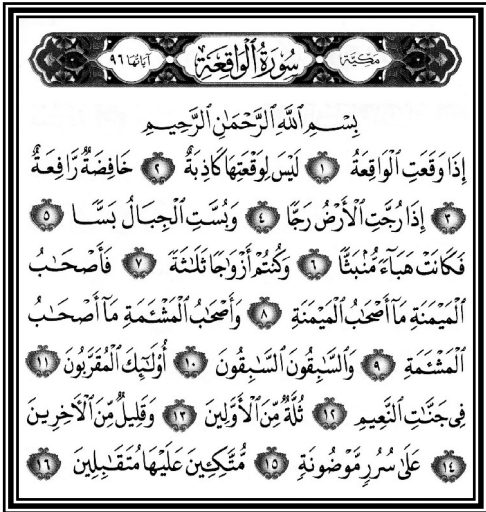 مكية سورة الواقعة آياتها ٩٦
بِسْمِ ٱللَّهِ ٱلرَّحْمَٰنِ ٱلرَّحِيمِ
إِذَا وَقَعَتِ ٱلْوَاقِعَةُ ١ لَيْسَ لِوَقْعَتِهَا كَاذِبَةٌ ٢ خَافِضَةٌ رَّافِعَةٌ
٣ إِذَا رُجَّتِ ٱلْأَرْضُ رَجًّا ٤ وَبُسَّتِ ٱلْجِبَالُ بَسًّا ٥
فَكَانَتْ هَبَآءً مُّنۢبَثًّا ٦ وَكُنتُمْ أَزْوَٰجًا ثَلَٰثَةً ٧ فَأَصْحَٰبُ
ٱلْمَيْمَنَةِ مَآ أَصْحَٰبُ ٱلْمَيْمَنَةِ ٨ وَأَصْحَٰبُ ٱلْمَشْـَٔمَةِ مَآ أَصْحَٰبُ
ٱلْمَشْـَٔمَةِ ٩ وَٱلسَّٰبِقُونَ ٱلسَّٰبِقُونَ ١٠ أُو۟لَٰٓئِكَ ٱلْمُقَرَّبُونَ ١١
فِى جَنَّٰتِ ٱلنَّعِيمِ ١٢ ثُلَّةٌ مِّنَ ٱلْأَوَّلِينَ ١٣ وَقَلِيلٌ مِّنَ ٱلْـَٔاخِرِينَ
١٤ عَلَىٰ سُرُرٍ مَّوْضُونَةٍ ١٥ مُّتَّكِـِٔينَ عَلَيْهَا مُتَقَٰبِلِينَ ١٦